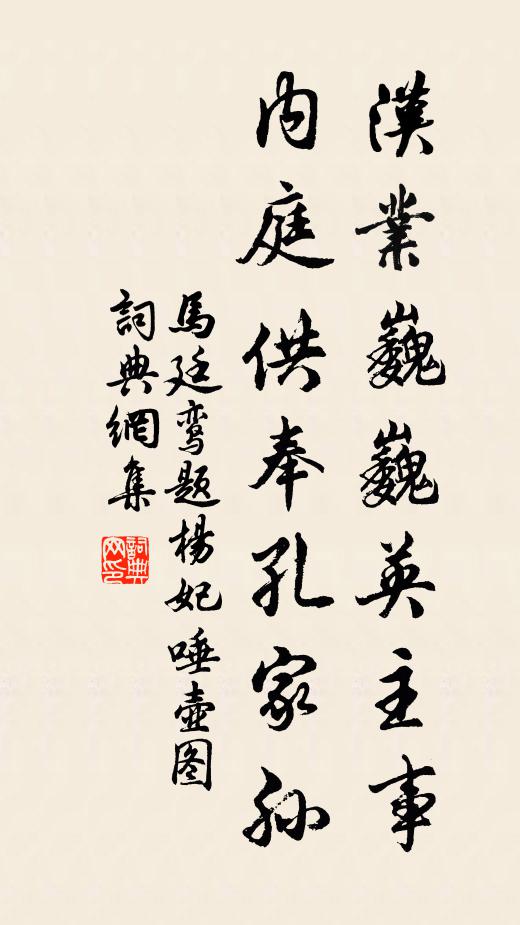 漢業巍巍英主事
内庭供奉孔家孫
馬廷鸾題楊妃唾壺图
詞典網集
詞典网印